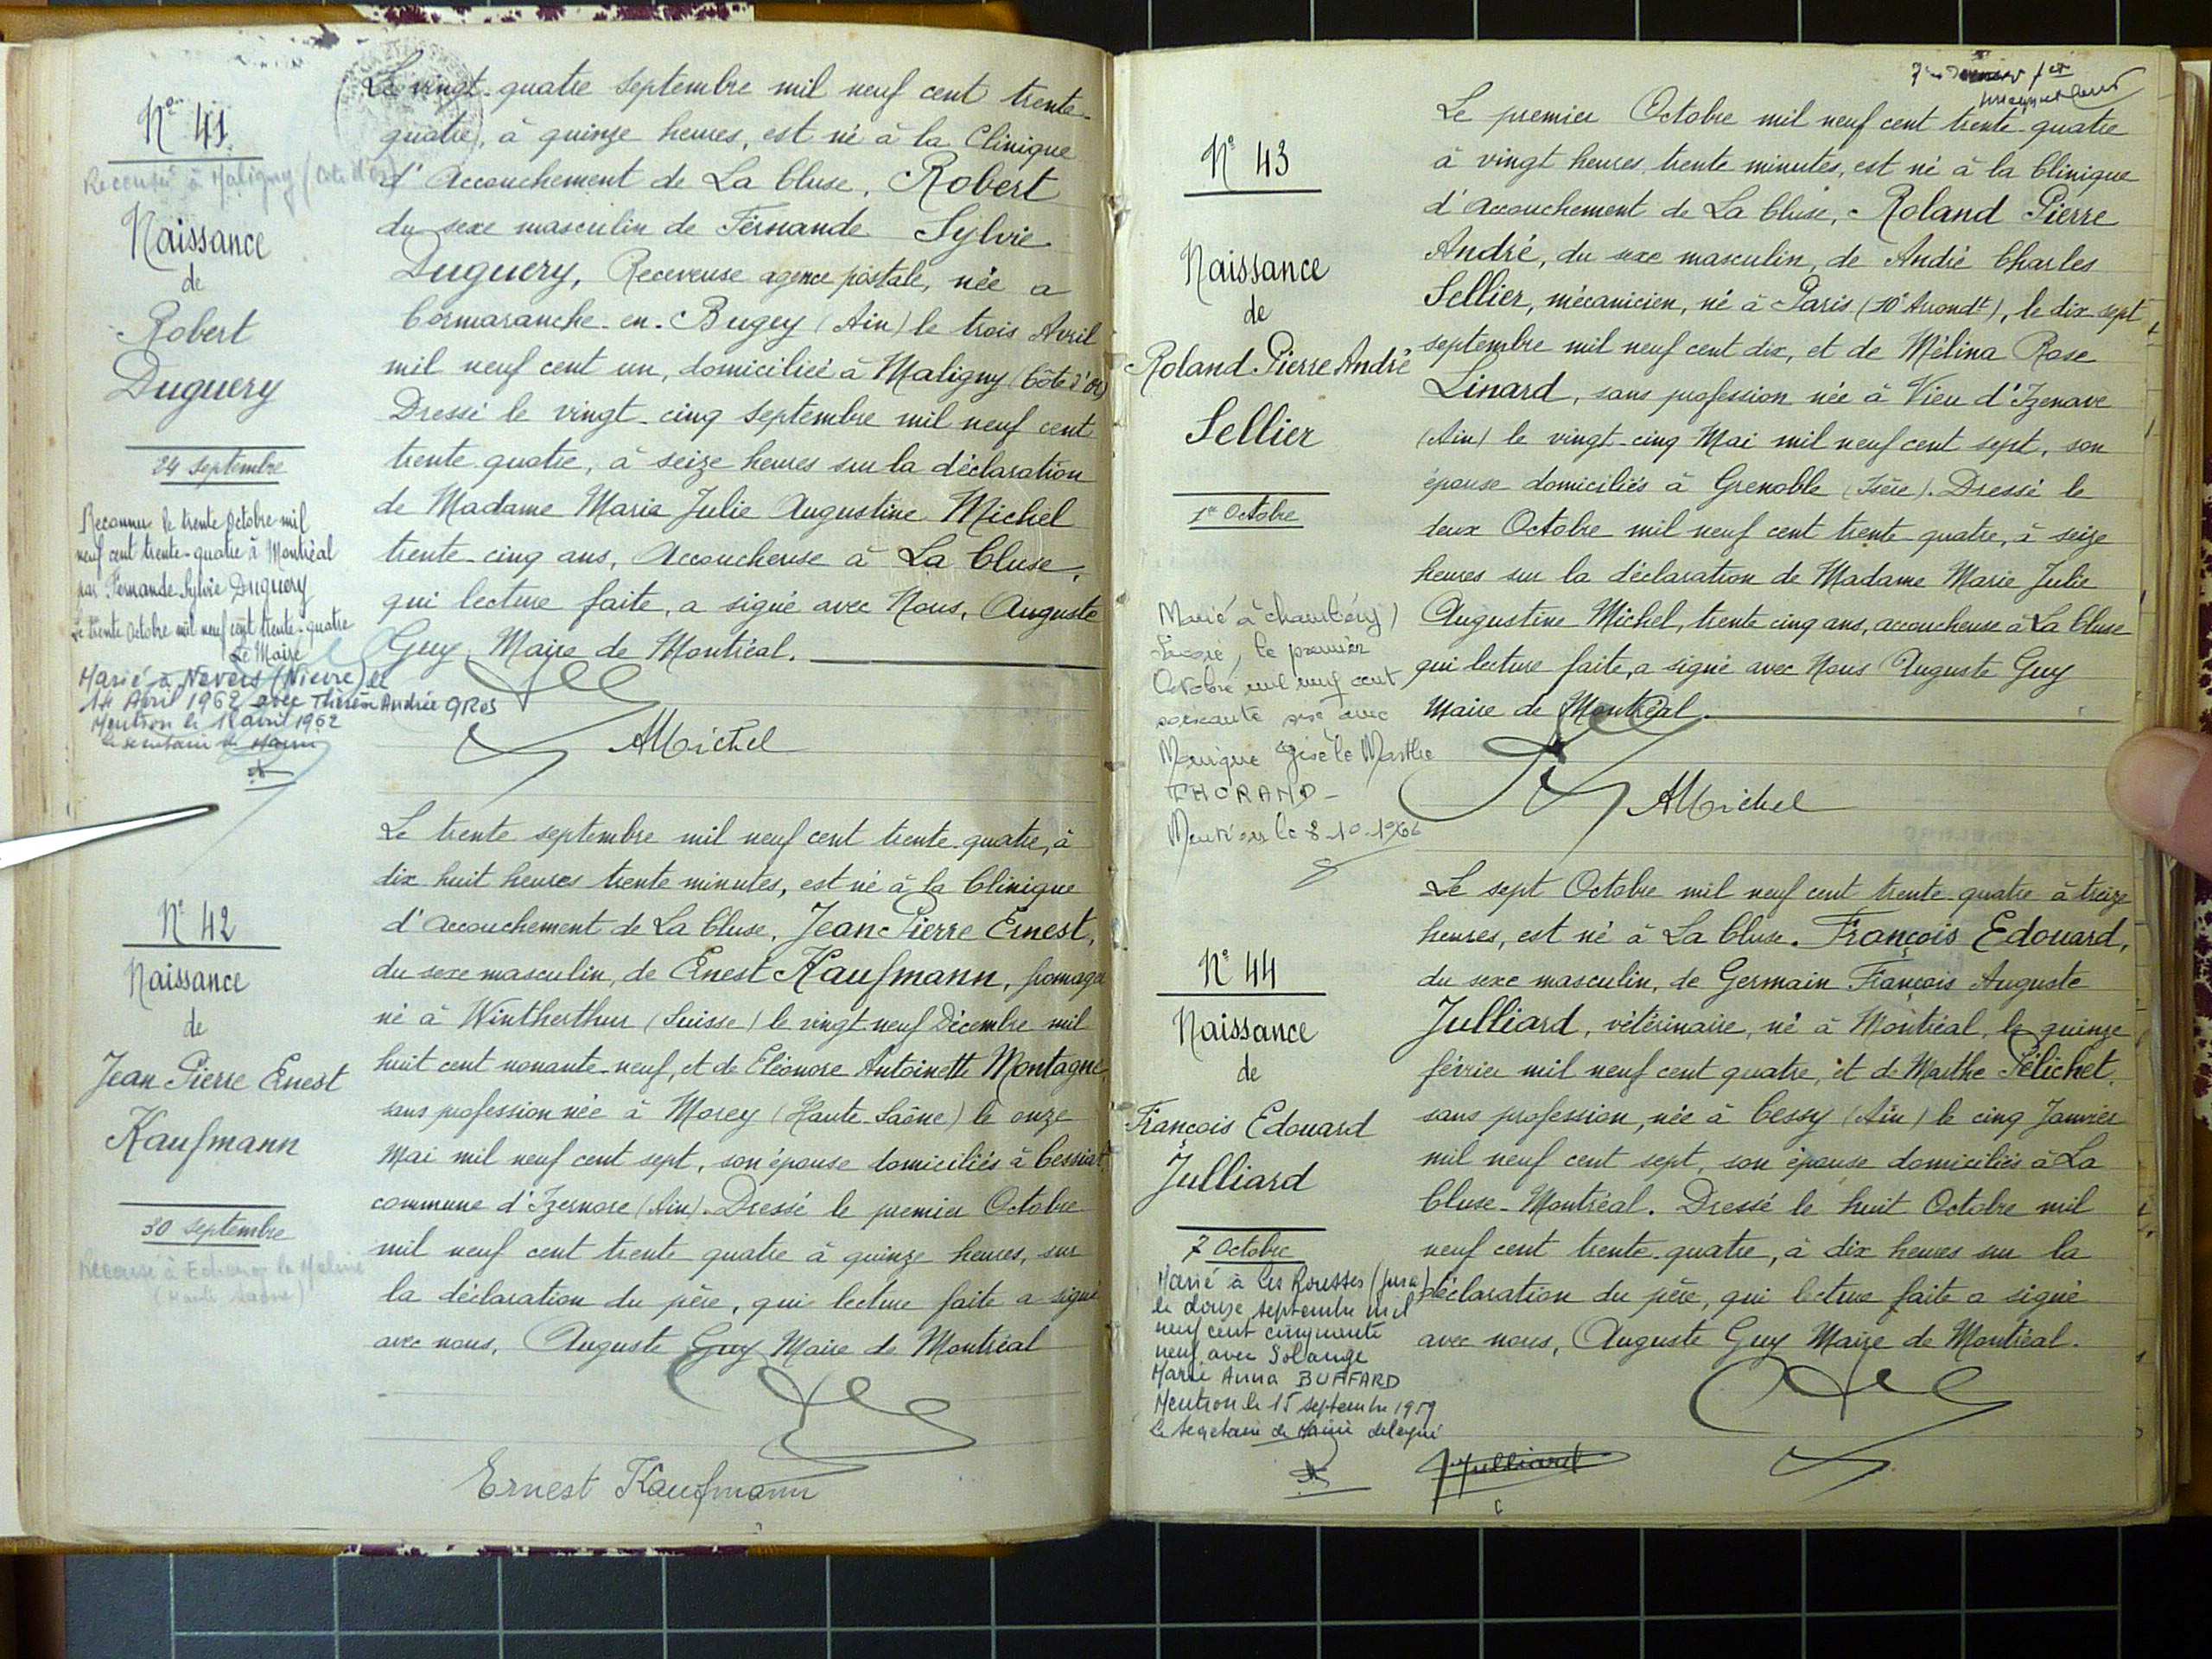 N° 41
Recensé à Maligny (Côte d'Or)
Naissance
de
Robert
Duguery
24 Septembre
Reconnu le trente Octobre mil
neuf cent trente-quatre à Montréal
par Fernande Sylvie Duguery
Le trente Octobre mil neuf cent trente-quatre
Le Maire
Marié à Nevers (Nièvre) le
14 Avril 1962 avec Thérèse Andrée GROS
Mention le 18 avril 1962
Le secrétaire de Mairie
Le vingt-quatre septembre mil neuf cent trente-
quatre, à quinze heures, est né à la Clinique
d'Accouchement de La Cluse, Robert
du sexe masculin de Fernande Sylvie
Duguery, Receveuse agence postale, née a
Cormaranche-en-Bugey (Ain) le trois Avril
mil neuf cent un, domiciliée à Maligny (Côte d'Or)
Dressé le vingt-cinq septembre mil neuf cent
trente quatre, à seize heures sur la déclaration
de Madame Marie Julie Augustine Michel
trente-cinq ans, Accoucheuse à La Cluse,
qui lecture faite, a signé avec Nous, Auguste
Guy, Maire de Montréal.
AMichel
N° 42
Naissance
de
Jean Pierre Ernest
Kaufmann
30 Septembre
Recensé à Echenoz la Meline
(Haute Saône)
Le trente septembre mil neuf cent trente-quatre, à
dix huit heures trente minutes, est né à la Clinique
d'accouchement de La Cluse, Jean-Pierre Ernest,
du sexe masculin, de Ernest Kaufmann, fromager
né à Wintherthur (Suisse) le vingt neuf Décembre mil
huit cent nonante-neuf, et de Eléonore Antoinette Montagne,
sans profession née à Morey (Haute-Saône) le onze
Mai mil neuf cent sept, son épouse domiciliés à Cessiat
commune d'Izernore (Ain). Dressé le premier Octobre
mil neuf cent trente quatre à quinze heures, sur
la déclaration du père, qui lecture faite a signé
avec nous, Auguste Guy Maire de Montréal
Ernest Kaufmann
N° 43
Naissance
de
Roland Pierre André
Sellier
1er Octobre
Marié à Chambéry
le premier
Octobre mil neuf cent
soixante six avec
Monique Gisèle Marthe
THORAND-
Mention le 8-10-1966
Le premier Octobre mil neuf cent trente-quatre
à vingt heures, trente minutes, est né à la Clinique
d'accouchement de La Cluse, Roland Pierre
André, du sexe masculin, de André Charles
Sellier, mécanicien, né à Paris (10e Arrondt), le dix sept
septembre mil neuf cent dix, et de Mélina Rose
Linard, sans profession née à Vieu d'Izenave
(Ain) le vingt-cinq Mai mil neuf cent sept, son
épouse domiciliés à Grenoble (Isère). Dressé le
deux Octobre mil neuf cent trente quatre, à seize
heures sur la déclaration de Madame Marie Julie
Augustine Michel, trente cinq ans, accoucheuse à La Cluse
qui lecture faite, a signé avec Nous Auguste Guy
Maire de Montréal.
AMichel
N° 44
Naissance
de
François Edouard
Julliard
7 Octobre
Marié à Les Rousses (Jura)
le douze septembre mil
neuf cent cinquante
neuf avec Solange
Marie Anna BUFFARD
Mention le 15 septembre 1959
Le Secrétaire de Mairie délégué
Le sept Octobre mil neuf cent trente-quatre à treize
heures, est né à La Cluse. François Edouard,
du sexe masculin, de Germain François Auguste
Julliard, vétérinaire, né à Montréal, le quinze
février mil neuf cent quatre, et de Marthe Pélichet,
sans profession, née à Cessy (Ain) le cinq Janvier
mil neuf cent sept, son épouse domiciliés à La
Cluse-Montréal. Dressé le huit Octobre mil
neuf cent trente-quatre, à dix heures sur la
déclaration du père, qui lecture faite a signé
avec nous, Auguste Guy Maire de Montréal.
Julliard